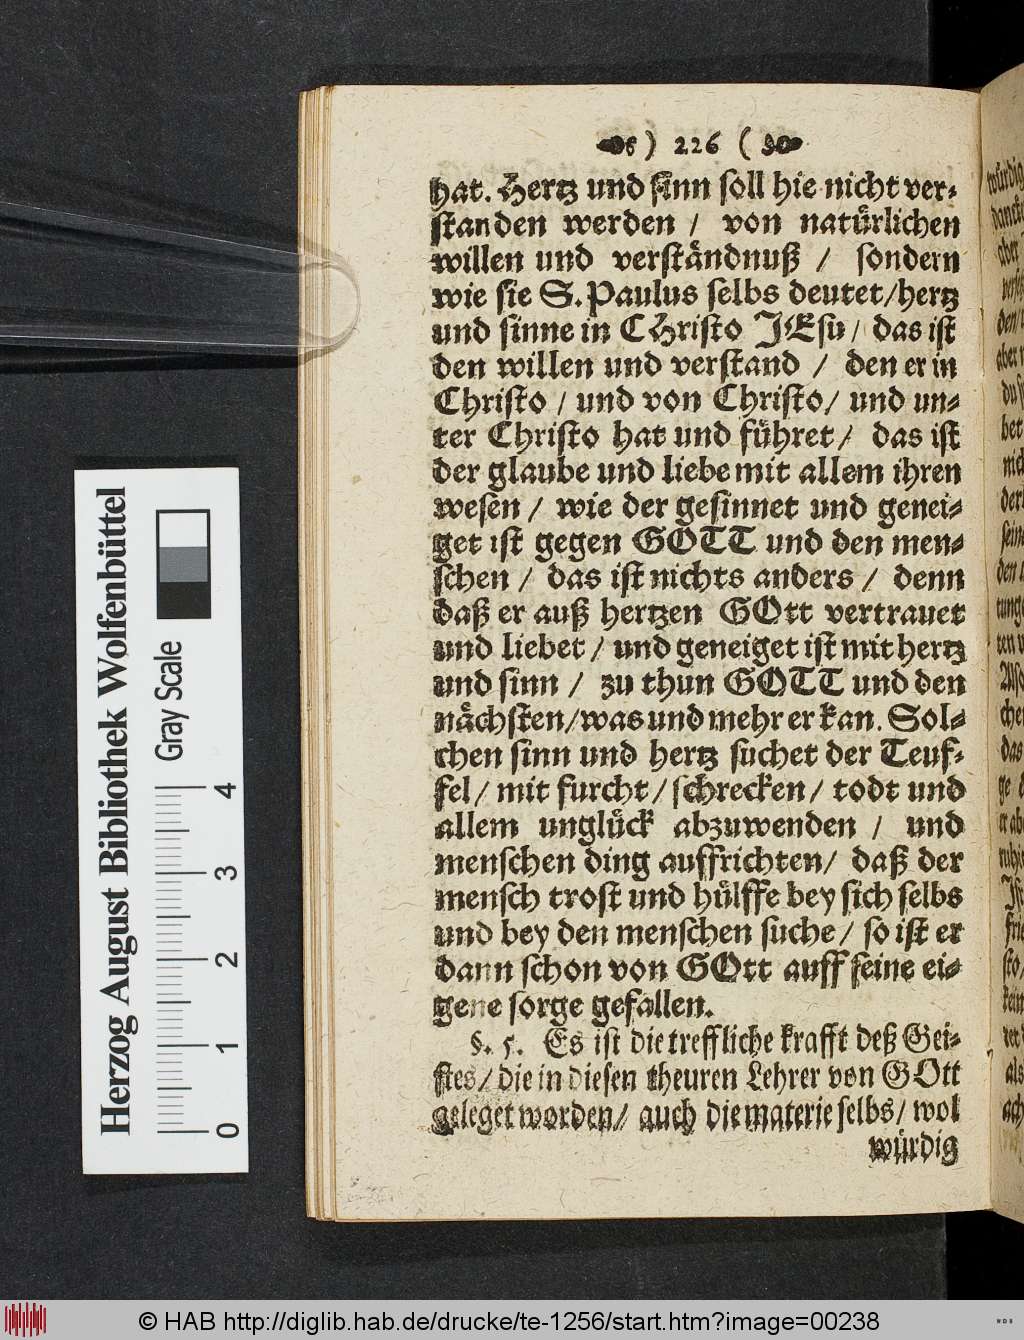 ) 226 (
hat. Hertz und sinn soll hie nicht ver-
standen werden / von natürlichen
willen und verständnuß / sondern
wie sie S. Paulus selbs deutet/hertz
und sinne in CHristo JEsu / das ist
den willen und verstand / den er in
Christo / und von Christo/ und un-
ter Christo hat und führet / das ist
der glaube und liebe mit allem ihren
wesen / wie der gesinnet und genei-
get ist gegen GOTT und den men-
schen / das ist nichts anders / denn
daß er auß hertzen GOtt vertrauet
und liebet / und geneiget ist mit hertz
und sinn / zu thun GOTT und den
nächsten/was und mehr er kan. Sol-
chen sinn und hertz suchet der Teuf-
fel / mit furcht / schrecken / todt und
allem unglück abzuwenden / und
menschen ding auffrichten/ daß der
mensch trost und hülffe bey sich selbs
und bey den menschen suche / so ist er
dann schon von GOtt auff seine ei-
gene sorge gefallen.
§. 5. Es ist die treffliche krafft deß Gei-
stes / die in diesen theuren Lehrer von GOtt
geleget worden/ auch die materie selbs/ wol
würdig
Herzog August Bibliothek Wolfenbüttel
Gray Scale
0 1 2 3 4
© HAB http://diglib.hab.de/drucke/te-1256/start.htm?image=00238